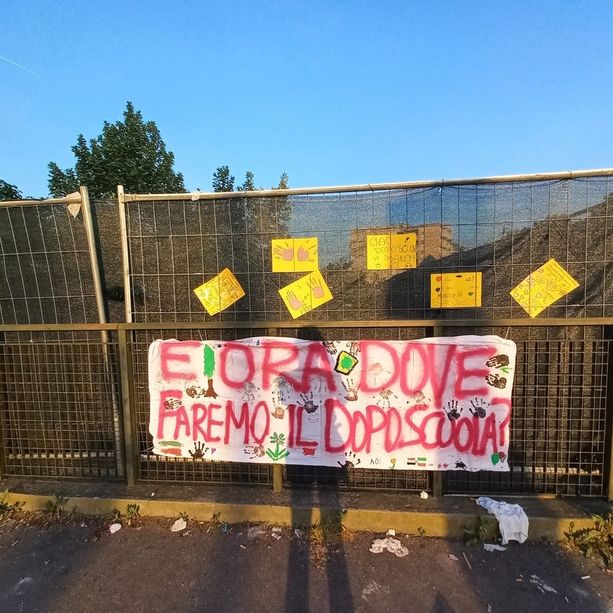 CIAO
DOPOSCUOLA
E ORA DOVE
FAREMO IL DOPOSCUOLA?